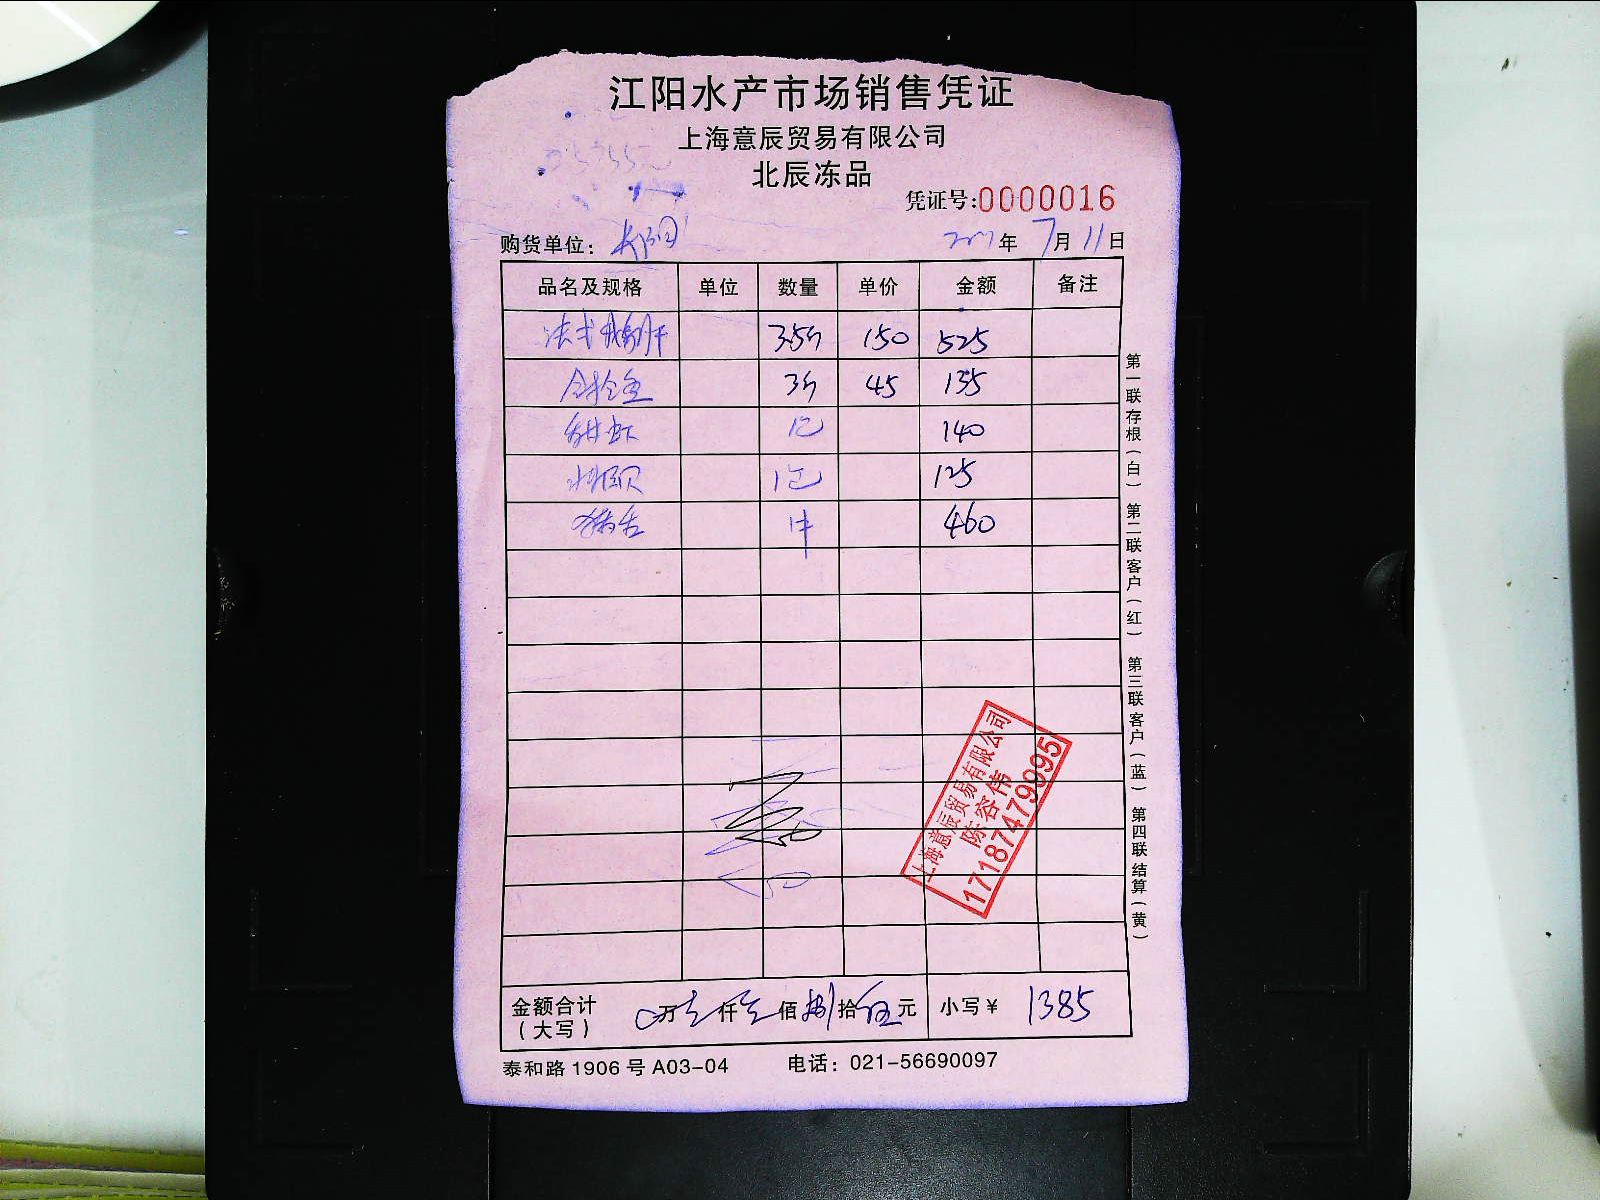 江阳水产市场销售凭证
上海意辰贸易有限公司
北辰冻品
凭证号:0000016
购货单位:
年 7月11日
品名及规格 单位 数量 单价 金额 备注
法式鹅肝 3.5斤 150 525
金枪鱼 3斤 45 135
甜虾 1包 140
1包 125
1件 460
第一联存根(白) 第二联客户(红) 第三联客户(蓝) 第四联结算(黄)
上海意辰贸易有限公司
陈容伟
17187479995
金额合计 0万 仟 佰捌拾伍元 小写¥ 1385
(大写)
泰和路1906号A03-04 电话:021-56690097